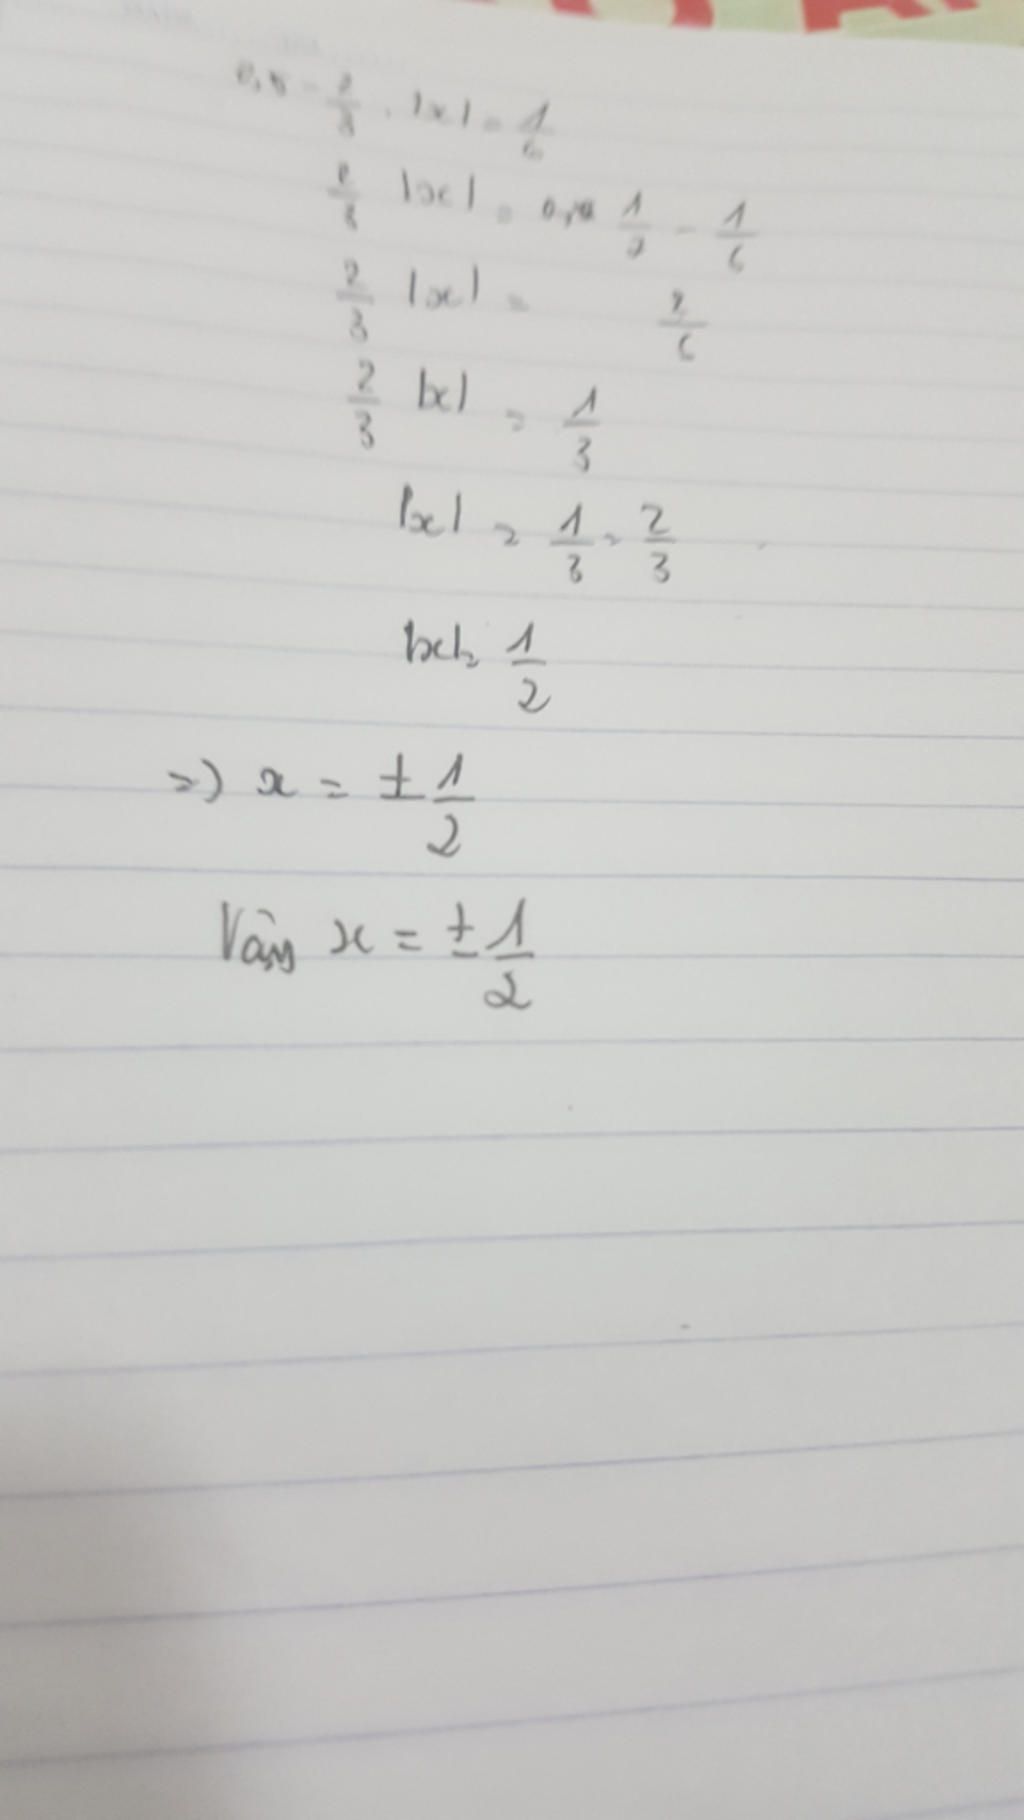 0,5 - 2/3 . |x| = 1/6
2/3 |x| = 1/2 - 1/6
2/3 |x| = 2/6
2/3 |x| = 1/3
|x| = 1/3 : 2/3
|x| = 1/2
=) x = ± 1/2
Vậy x = ± 1/2